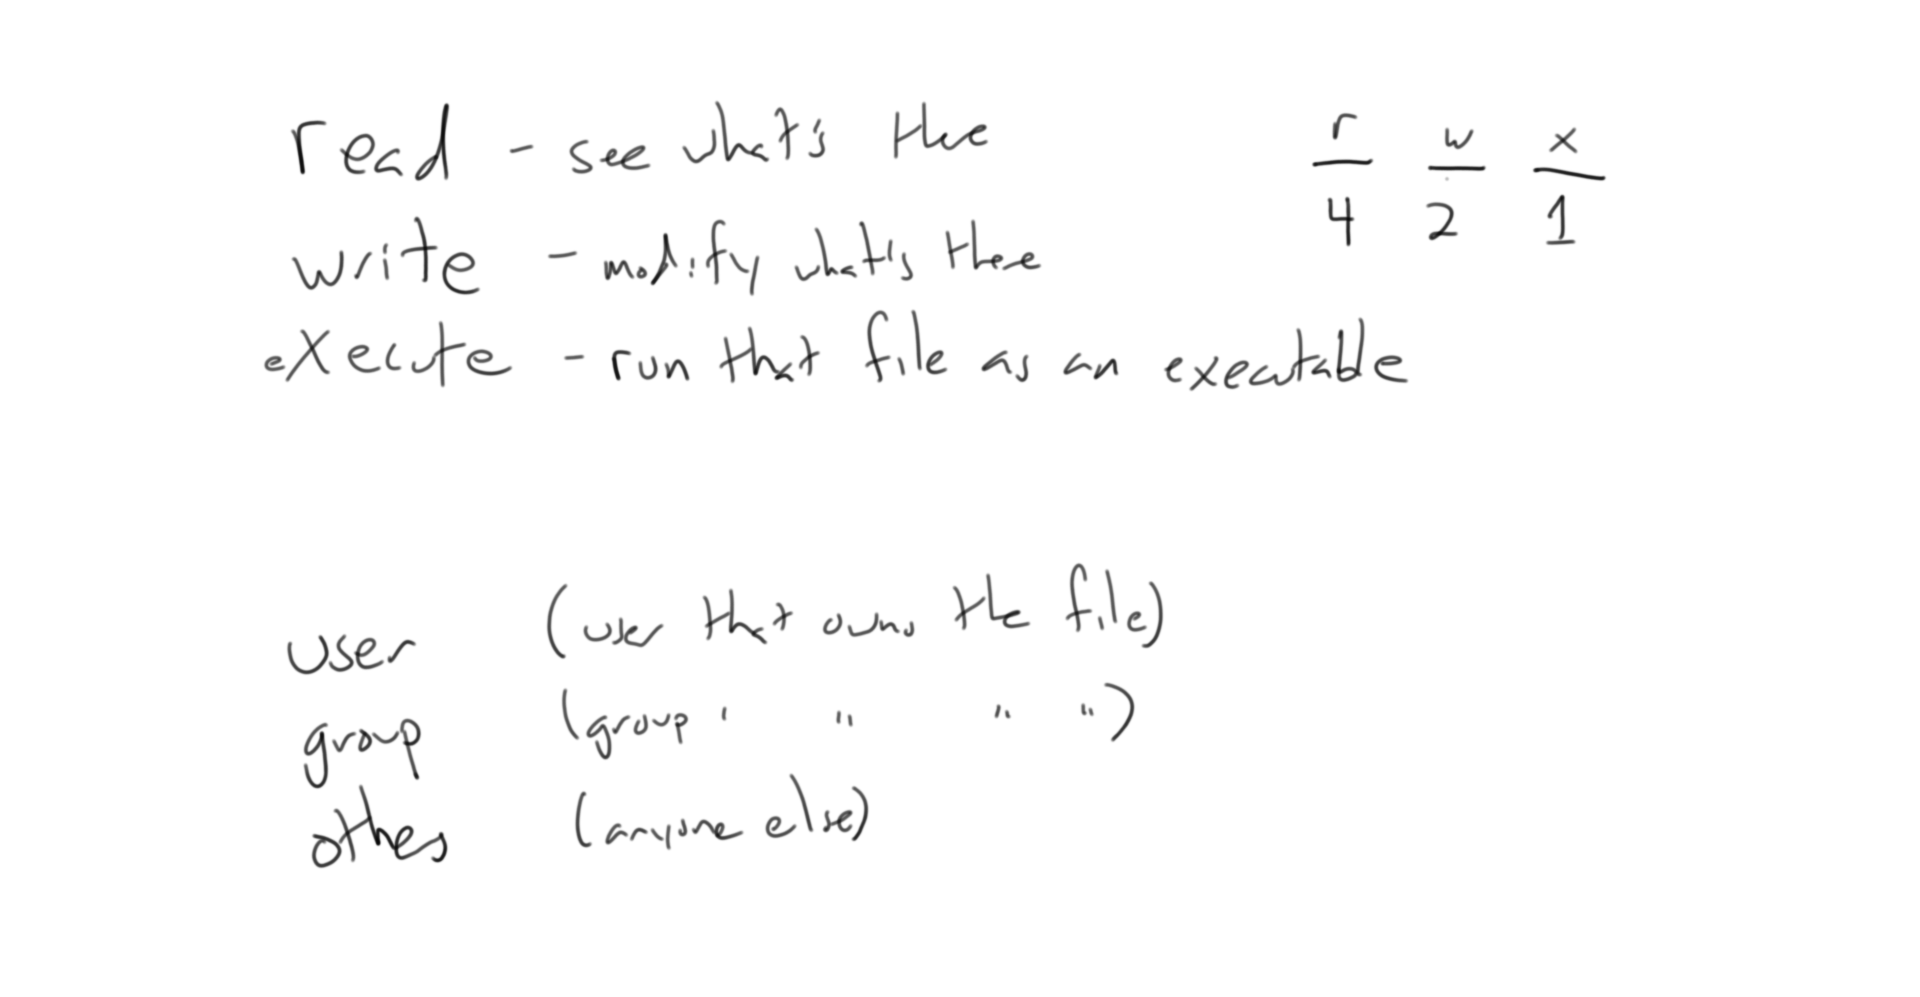 read - see what's there
write - modify what's there
execute - run that file as an executable
r w x
4 2 1
user (user that owns the file)
group (group " " " ")
others (anyone else)